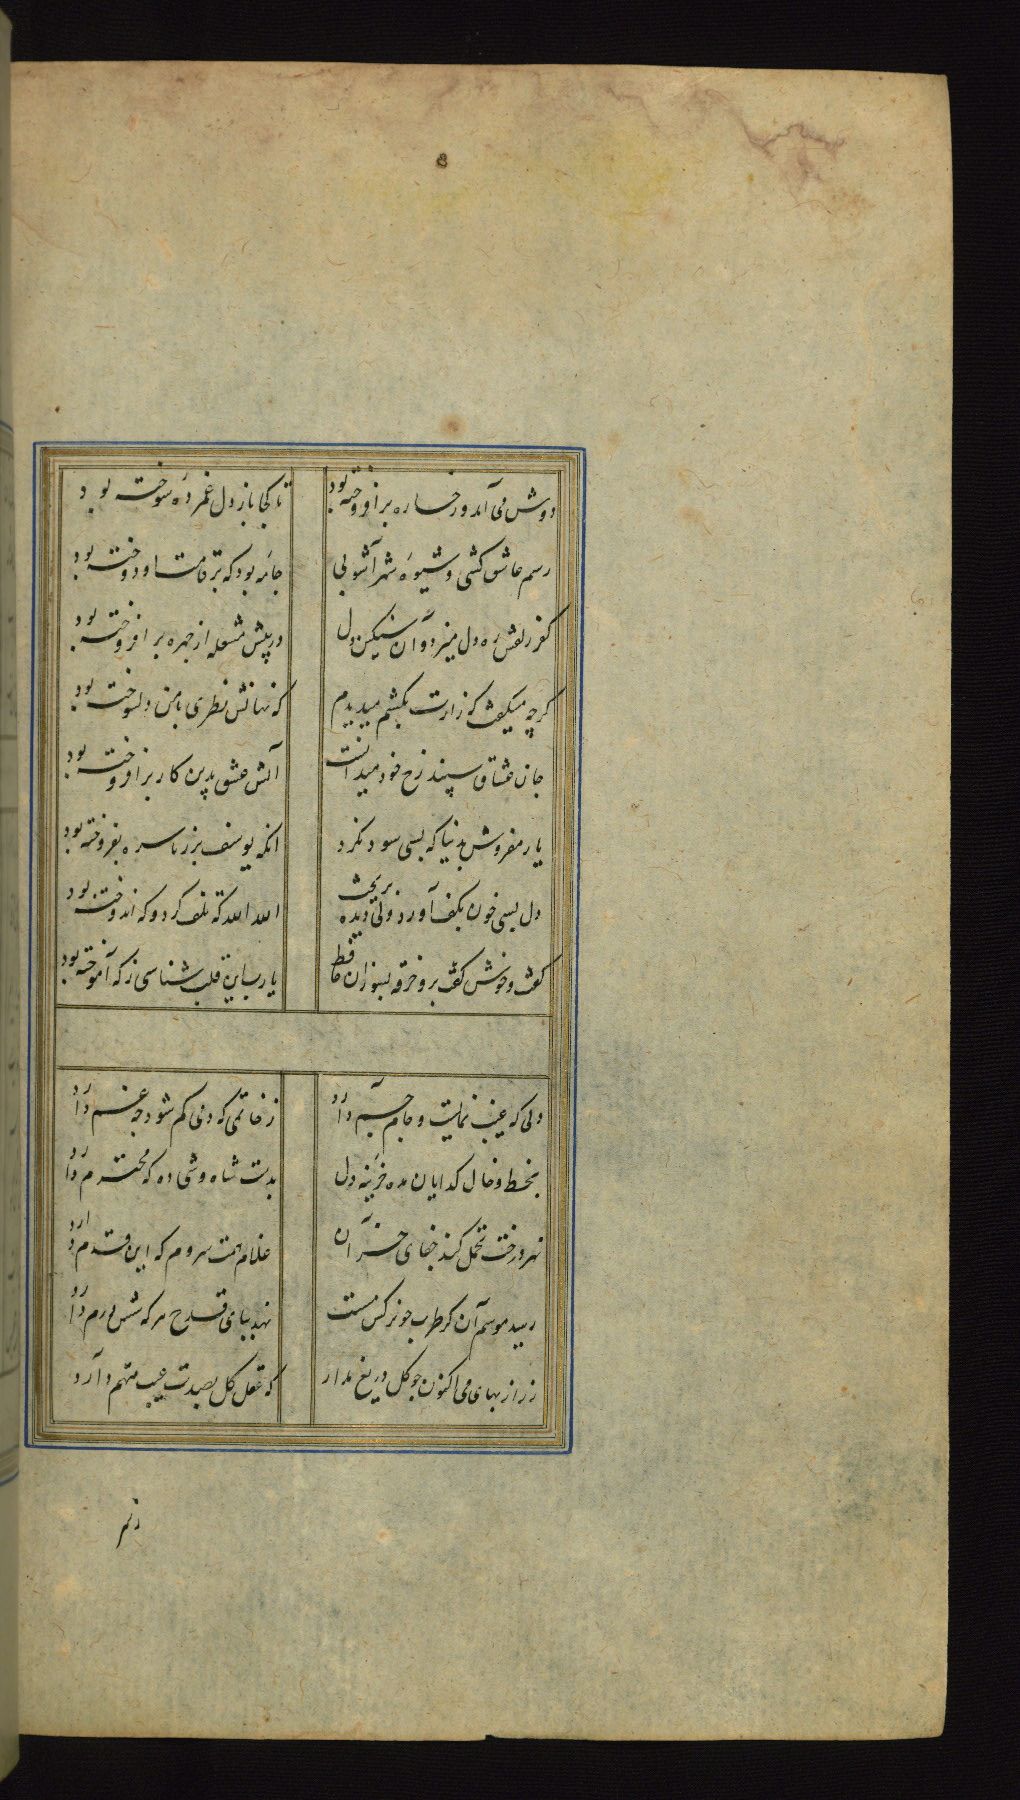 دوش می آمد و رخساره برافروخته بود
تا کجا باز دل غمزدهٔ سوخته بود
رسم عاشق کشی و شیوهٔ شهر آشوبی
جامهٔ بود که بر قامت او دوخته بود
کفر زلفش ره دل میزد و آن سنکین دل
در پیش مشعله از چهره برافروخته بود
کرچه میکفت که زارت بکشم میدیدم
که نهانش نظری با من دلسوخته بود
جان عشاق سپند رخ خود میدانست
آتش عشق بدین کار برافروخته بود
یار مفروش بدنیا که بسی سود نکرد
انکه یوسف بزر ناسره بفروخته بود
دل بسی خون بکف آورد ولی دیده بریخت
الله الله که تلف کرد و که اندوخته بود
کفت و خوش کفت برو خرقه بسوزان حافظ
یا رب این قلب شناسی ز که آموخته بود
دلی که غیب نمایست و جام جم دارد
ز خاتمی که دمی کم شود چه غم دارد
بخط و خال کدایان مده خزینه دل
بدست شاه وشی ده که محترم دارد
نه هر درخت تحمل کند جفای خزان
غلام همت سروم که این قدم دارد
رسید موسم آن کز طرب چو نرکس مست
نهد بپای قدح هر که شش درم دارد
زر از بهای می اکنون چو کل دریغ مدار
که عقل کل بصدت عیب متهم دارد